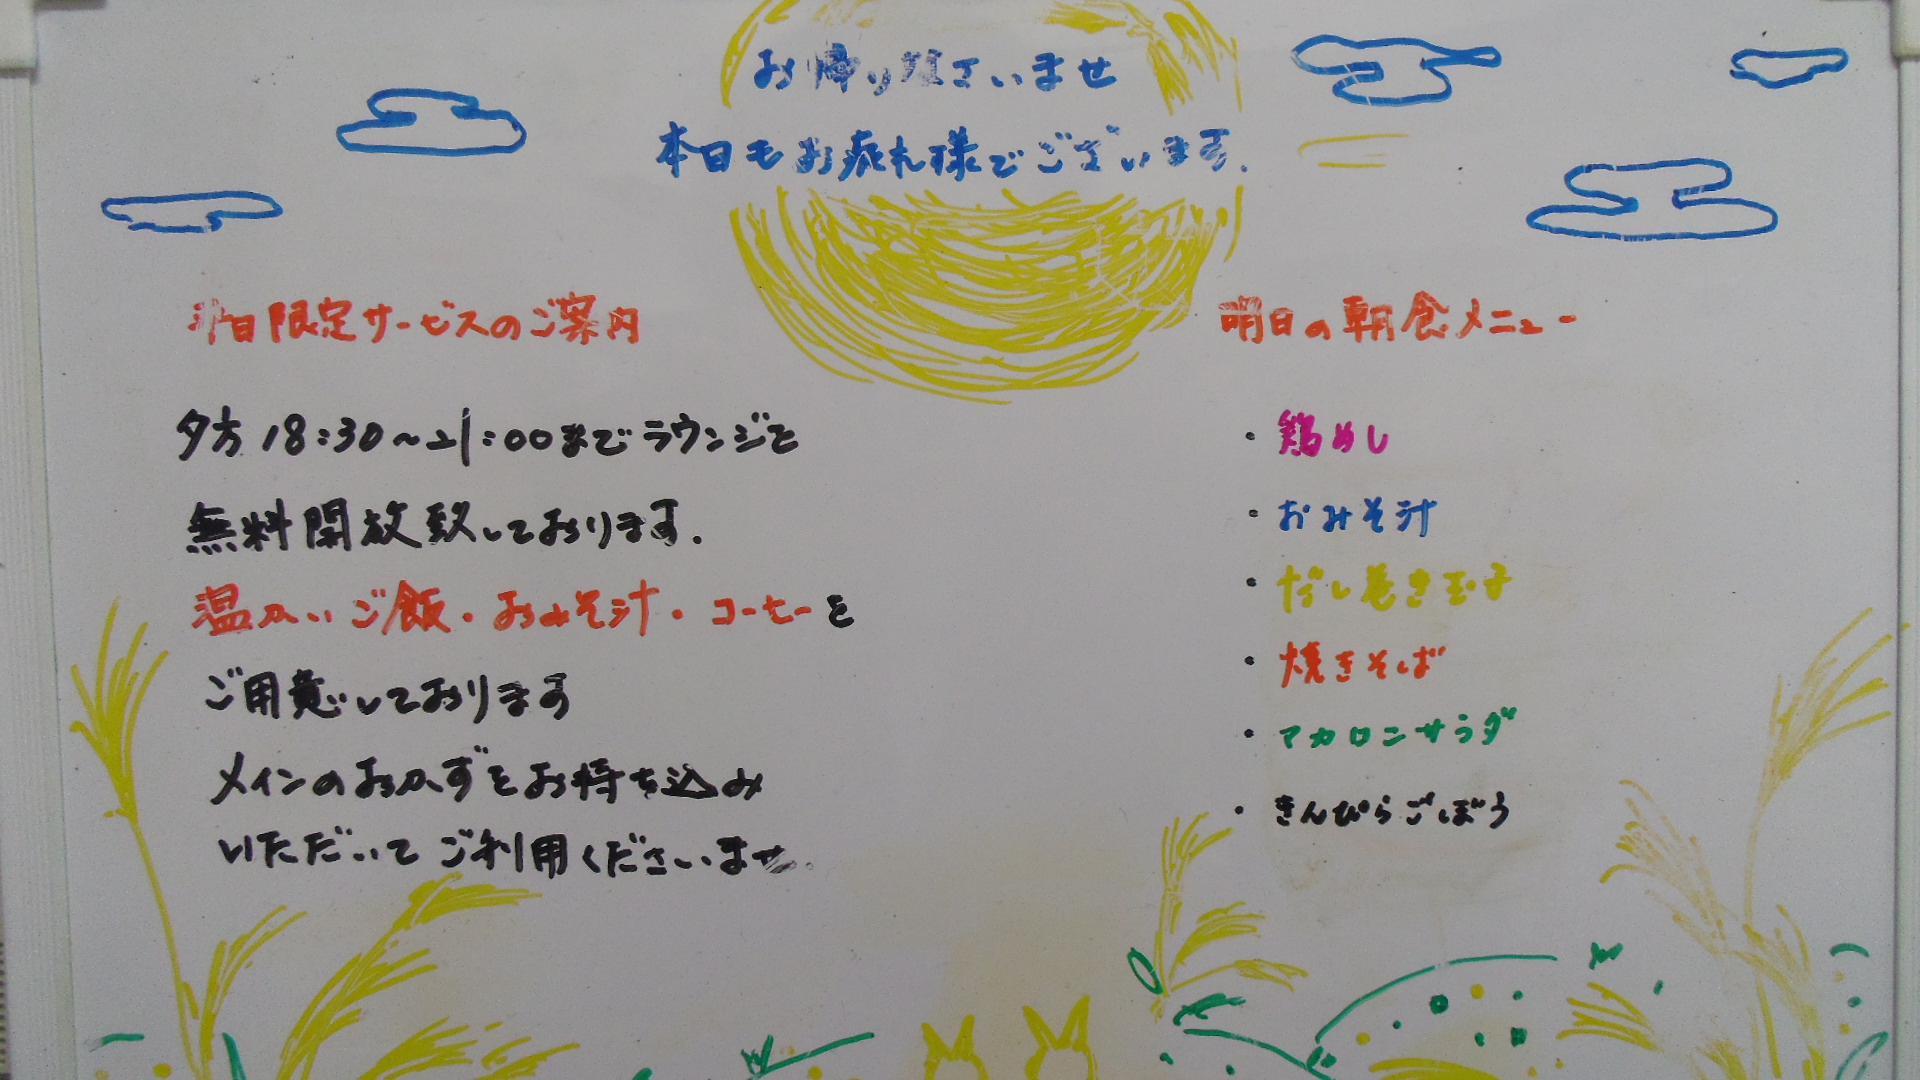 お帰りなさいませ
本日もお疲れ様でございます.
平日限定サービスのご案内
夕方 18:30～21:00までラウンジを
無料開放致しております.
温かいご飯・おみそ汁・コーヒーを
ご用意しております
メインのおかずをお持ち込み
いただいてご利用くださいませ.
明日の朝食メニュー
・鶏めし
・おみそ汁
・だし巻き玉子
・焼きそば
・マカロンサラダ
・きんぴらごぼう